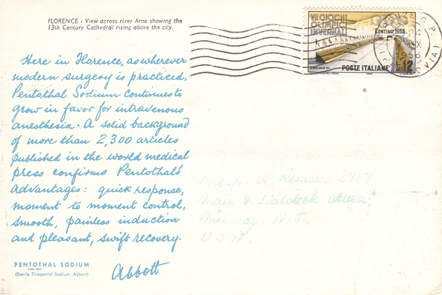 FLORENCE - View across river Arno showing the
13th Century Cathedral rising above the city.
Here in Florence, as wherever
modern surgery is practiced,
Pentothal Sodium continues to
grow in favor for intravenous
anesthesia. A solid background
of more than 2,300 articles
published in the world medical
press confirms Pentothal's
advantages: quick response,
moment to moment control,
smooth, painless induction
and pleasant, swift recovery.
Abbott
PENTOTHAL SODIUM
(Sterile Thiopental Sodium, Abbott)
VII GIOCHI
OLIMPICI
INVERNALI
CORTINA 1956
POSTE ITALIANE
12
Main &
N.J.
U.S.A.